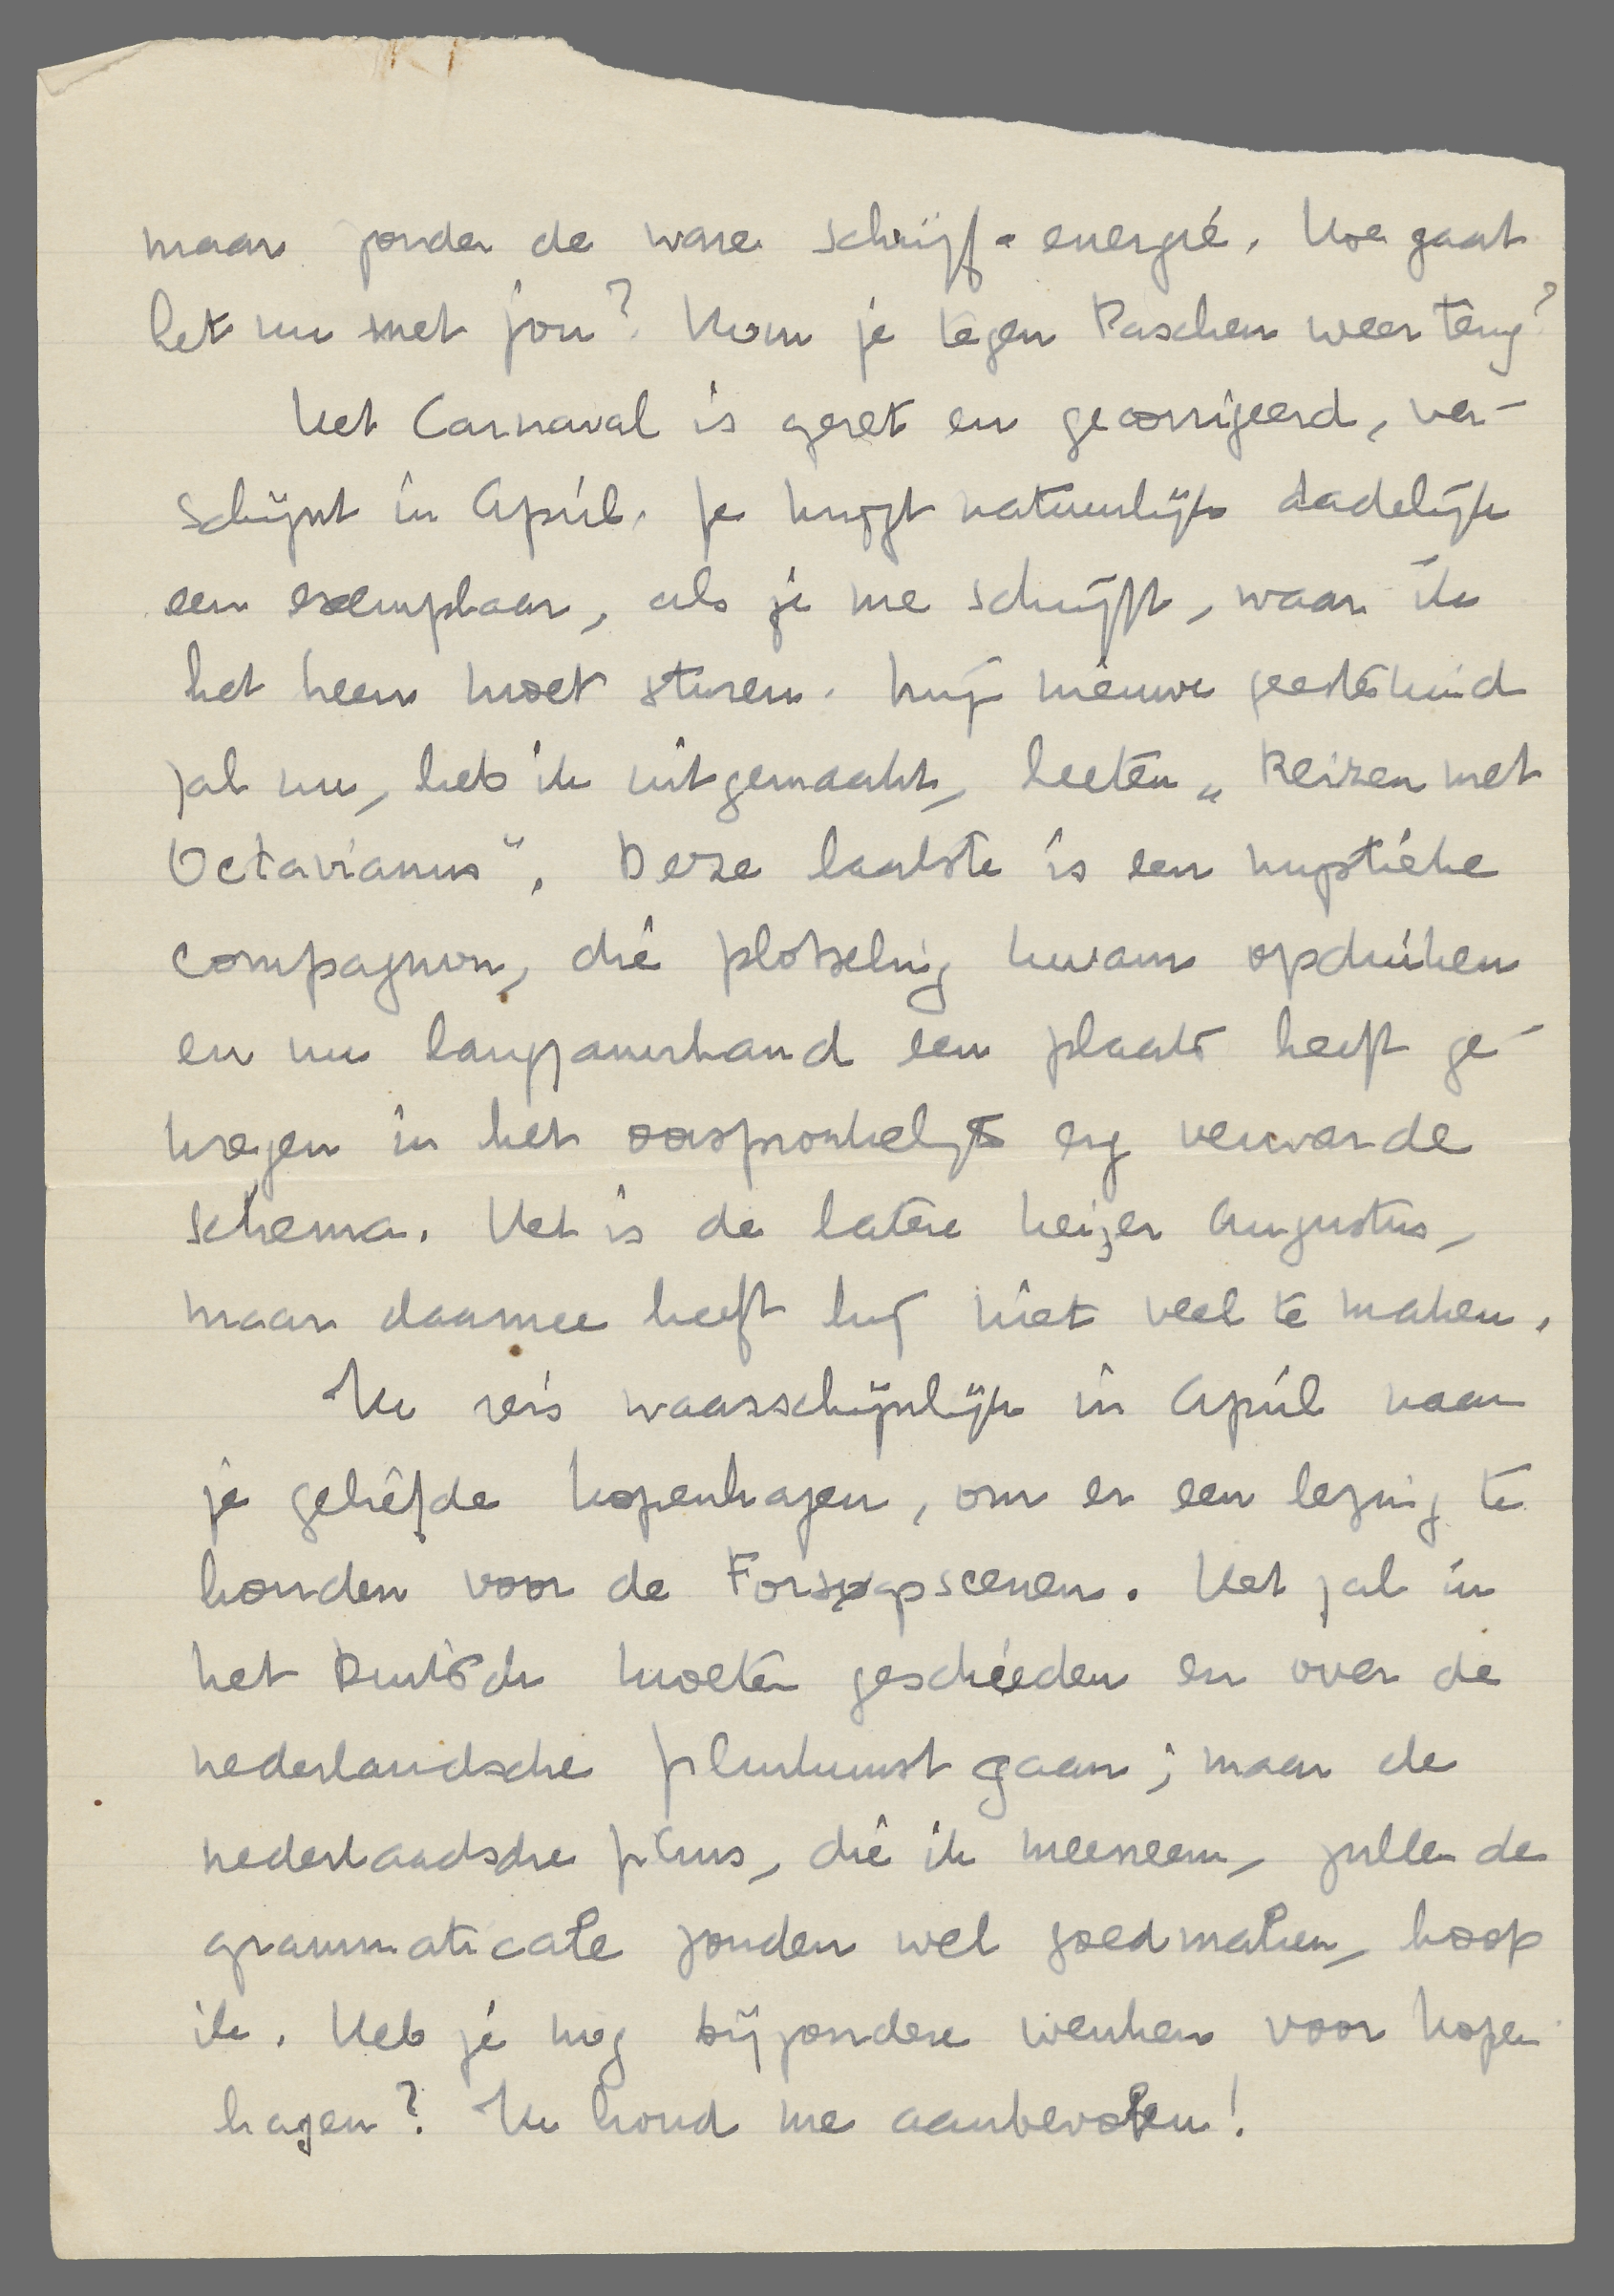 maar zonder de ware schrijf-energie. Hoe gaat
het nu met jou? Kom je tegen Paschen weer terug?
Het Carnaval is gezet en gecorrigeerd, ver-
schijnt in April. Je krijgt natuurlijk dadelijk
een exemplaar, als je me schrijft, waar ik
het heen moet sturen. Mijn nieuwe geesteskind
zal nu, heb ik uitgemaakt, heeten „Reizen met
Octavianus”. Deze laatste is een mystieke
compagnon, die plotseling kwam opduiken
en nu langzamerhand een plaats heeft ge-
kregen in het oorspronkelijk erg verwarde
schema. Het is de latere keizer Augustus,
maar daarmee heeft hij niet veel te maken.
Ik reis waarschijnlijk in April naar
je geliefde Kopenhagen, om er een lezing te
houden voor de Forsøgsscenen. Het zal in
het Duitsch moeten geschieden en over de
nederlandsche filmkunst gaan; maar de
nederlandsche films, die ik meeneem, zullen de
grammaticale zonden wel goedmaken, hoop
ik. Heb je nog bijzondere wenken voor Kopen
hagen? Ik houd me aanbevolen!